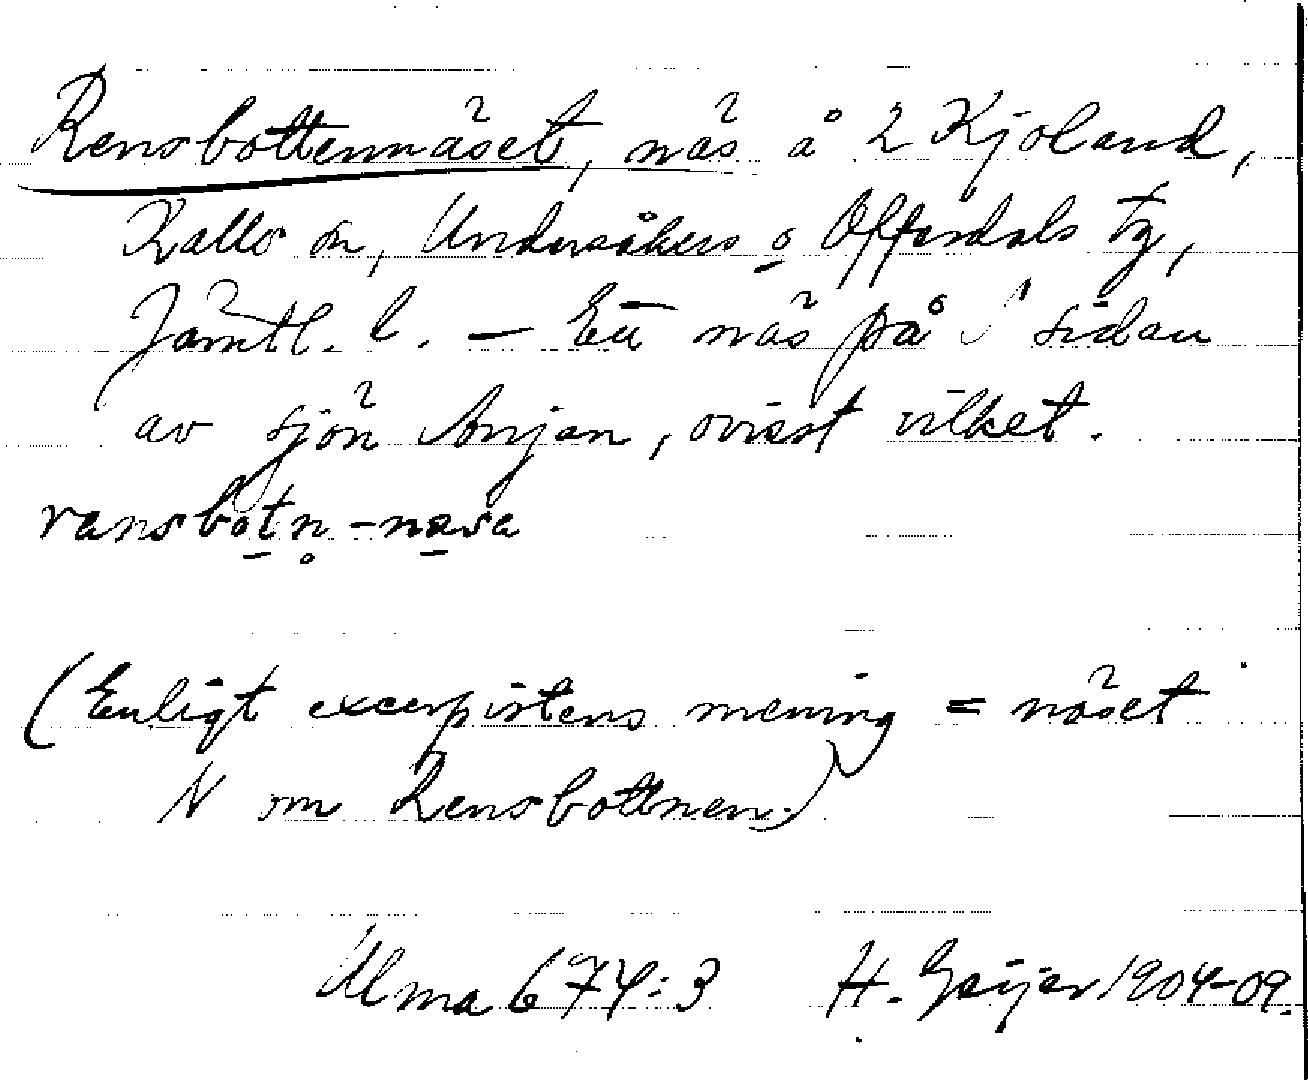 Rensbottennäset, näs å 2 Kjoland,
Kalls sn, Undersåkers o Offerdals tg,
Jämtl. l. – Ett näs på sidan
av sjön Anjan, ovisst vilket.
ransbotn̥ -næsa
(Enligt excerpistens mening = näset
N om Rensbottnen.)
Ulma 674:3 H. Geijer 1904-09.